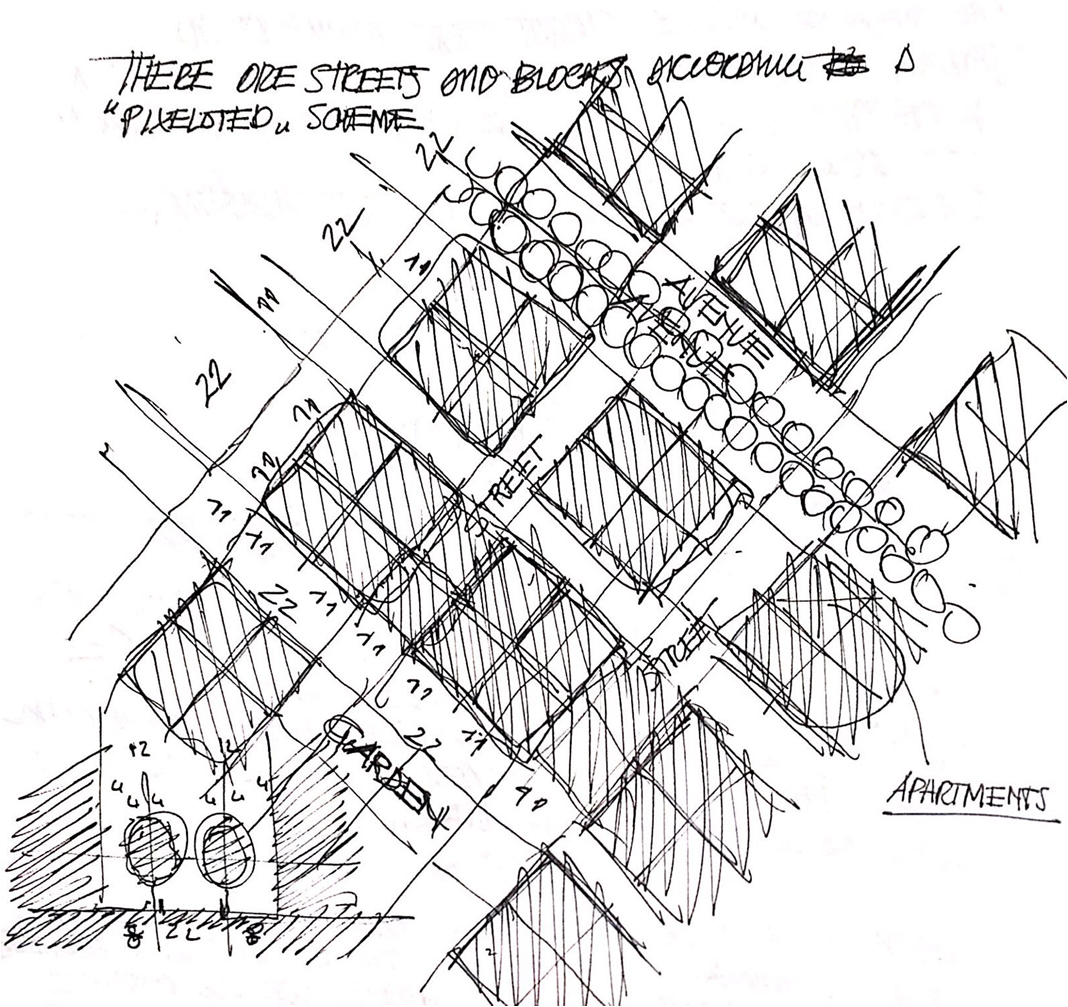 THERE ARE STREETS AND BLOCKS ACCORDING TO A
"PIXELATED" SCHEME
22
22
11
11
22
AVENUE
AVENUE
11
11
STREET
11
11
22
11
11
STREET
11
22
11
GARDEN
12
12
4 4 4
4 4 4
APARTMENTS
8 22 8